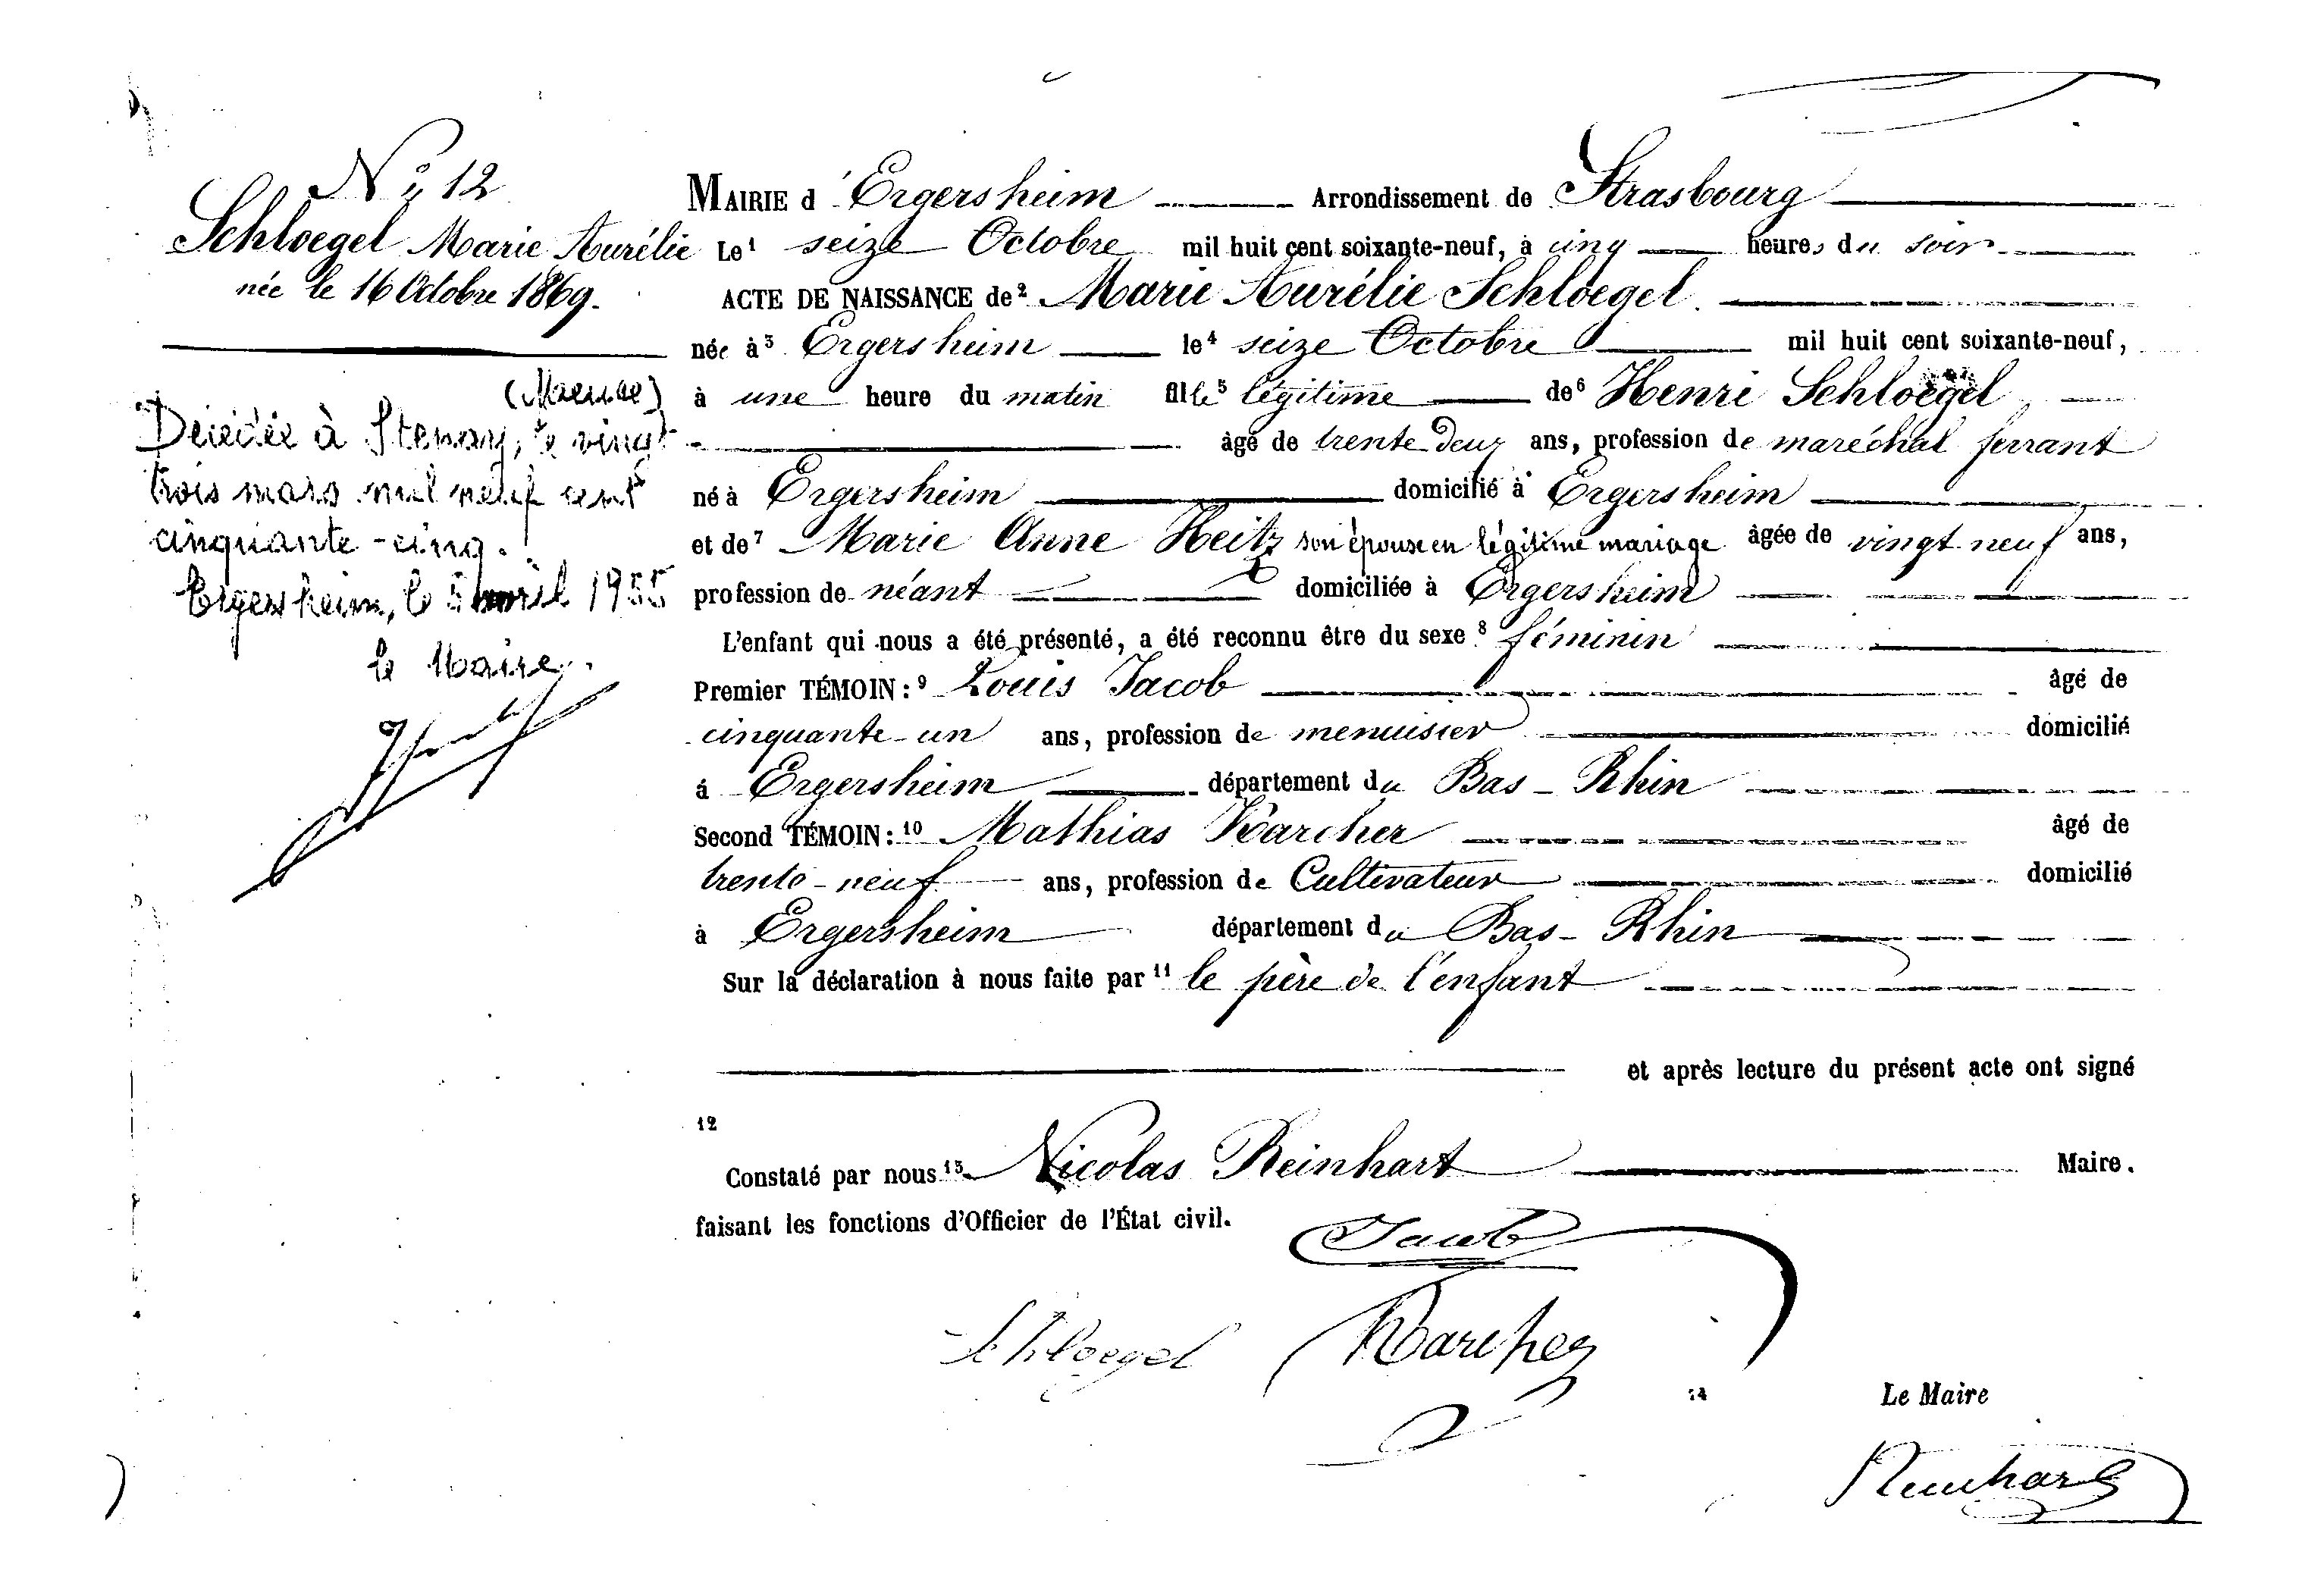 N° 12
Schloegel Marie Aurélie
née le 16 Octobre 1869.
(Meuse)
Décédée à Stenay, le vingt-
trois mars mil neuf cent
cinquante-cinq.
Ergersheim, le 5 avril 1955
le Maire.
MAIRIE d'Ergersheim Arrondissement de Strasbourg
Le 1 seize Octobre mil huit cent soixante-neuf, à cinq heures du soir
ACTE DE NAISSANCE de 2 Marie Aurélie Schloegel
née à 3 Ergersheim le 4 seize Octobre mil huit cent soixante-neuf,
à une heure du matin fille 5 légitime de 6 Henri Schloegel
âgé de trente deux ans, profession de maréchal ferrant
né à Ergersheim domicilié à Ergersheim
et de 7 Marie Anne Heitz son épouse en légitime mariage âgée de vingt neuf ans,
profession de néant domiciliée à Ergersheim
L'enfant qui nous a été présenté, a été reconnu être du sexe 8 féminin
Premier TÉMOIN : 9 Louis Jacob âgé de
cinquante-un ans, profession de menuisier domicilié
à Ergersheim département du Bas-Rhin
Second TÉMOIN : 10 Mathias Karcher âgé de
trente-neuf ans, profession de Cultivateur domicilié
à Ergersheim département du Bas-Rhin
Sur la déclaration à nous faite par 11 le père de l'enfant
et après lecture du présent acte ont signé
12
Constaté par nous 13 Nicolas Reinhart Maire.
faisant les fonctions d'Officier de l'État civil.
Jacob
Schloegel Karcher
14 Le Maire
Reinhart